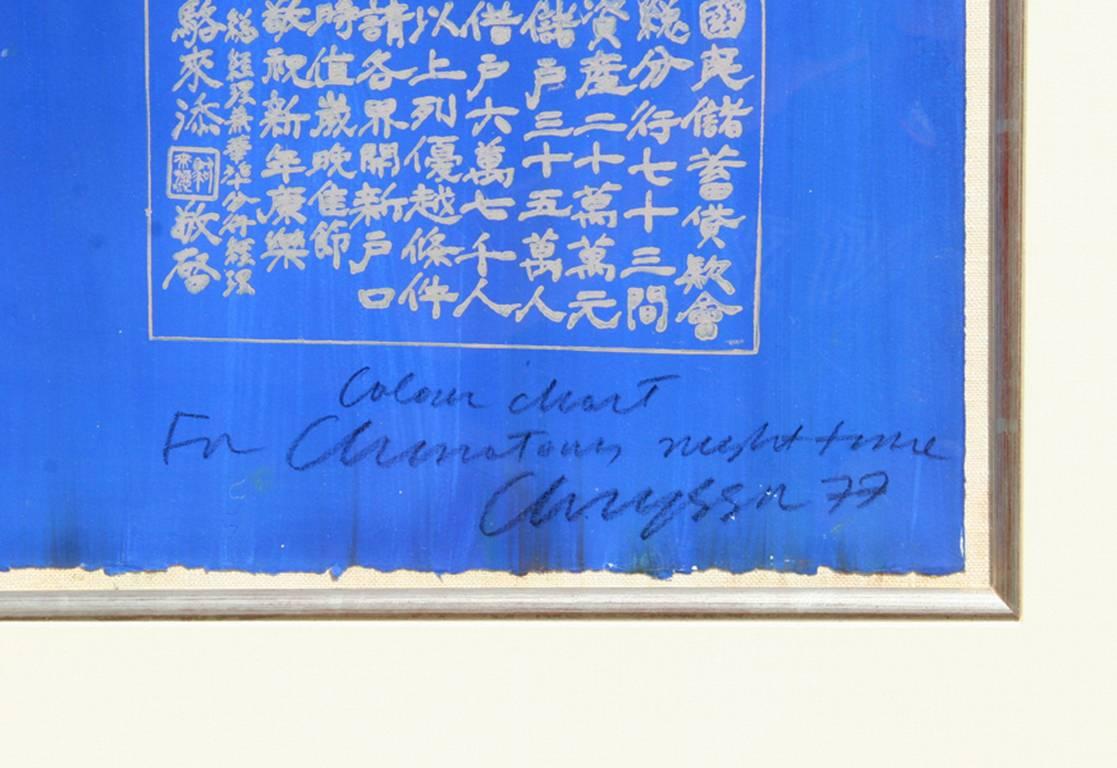 國民儲蓄貸款會
總分行七十三間
資產二十萬萬元
儲戶三十五萬人
借戶六萬七千人
以上列優越條件
請各界開新戶口
時值歲晚佳節
敬祝新年康樂
總經理兼華埠分行經理
駱來添
敬啓
Colour chart
For Chinatown night time
Chryssa 77